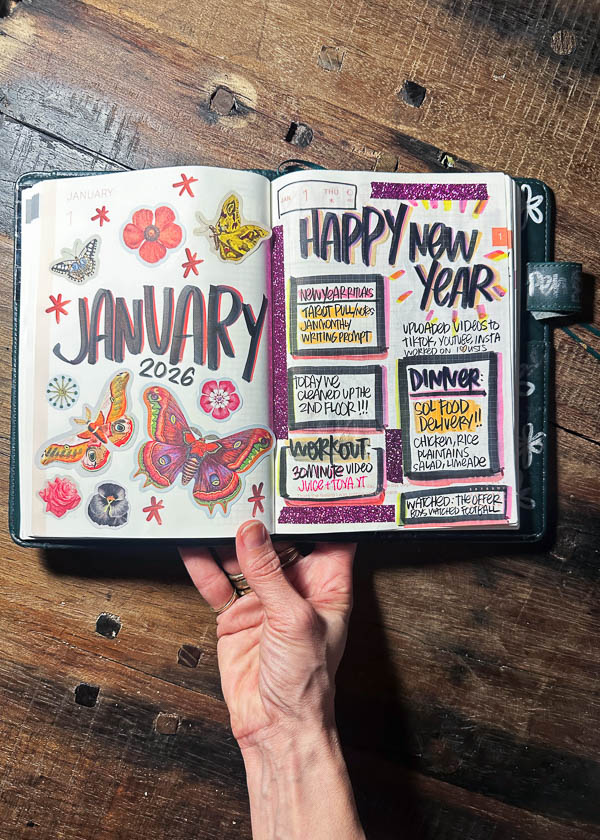 JANUARY
1
JANUARY
2026
JAN 1 THU
HAPPY NEW
YEAR
1
NEW YEAR RITUALS
TAROT PULL
JAN MONTHLY
WRITING PROMPT
UPLOADED VIDEOS TO
TIKTOK, YOUTUBE, INSTA
WORKED ON
TODAY WE
CLEANED UP THE
2ND FLOOR!!!
DINNER:
SOL FOOD
DELIVERY!!
CHICKEN, RICE
PLAINTAINS
SALAD, LIMEADE
WORKOUT:
30 MINUTE VIDEO
JUICE + TOYA YT
WATCHED: THE OFFER
BOYS WATCHED FOOTBALL
pens